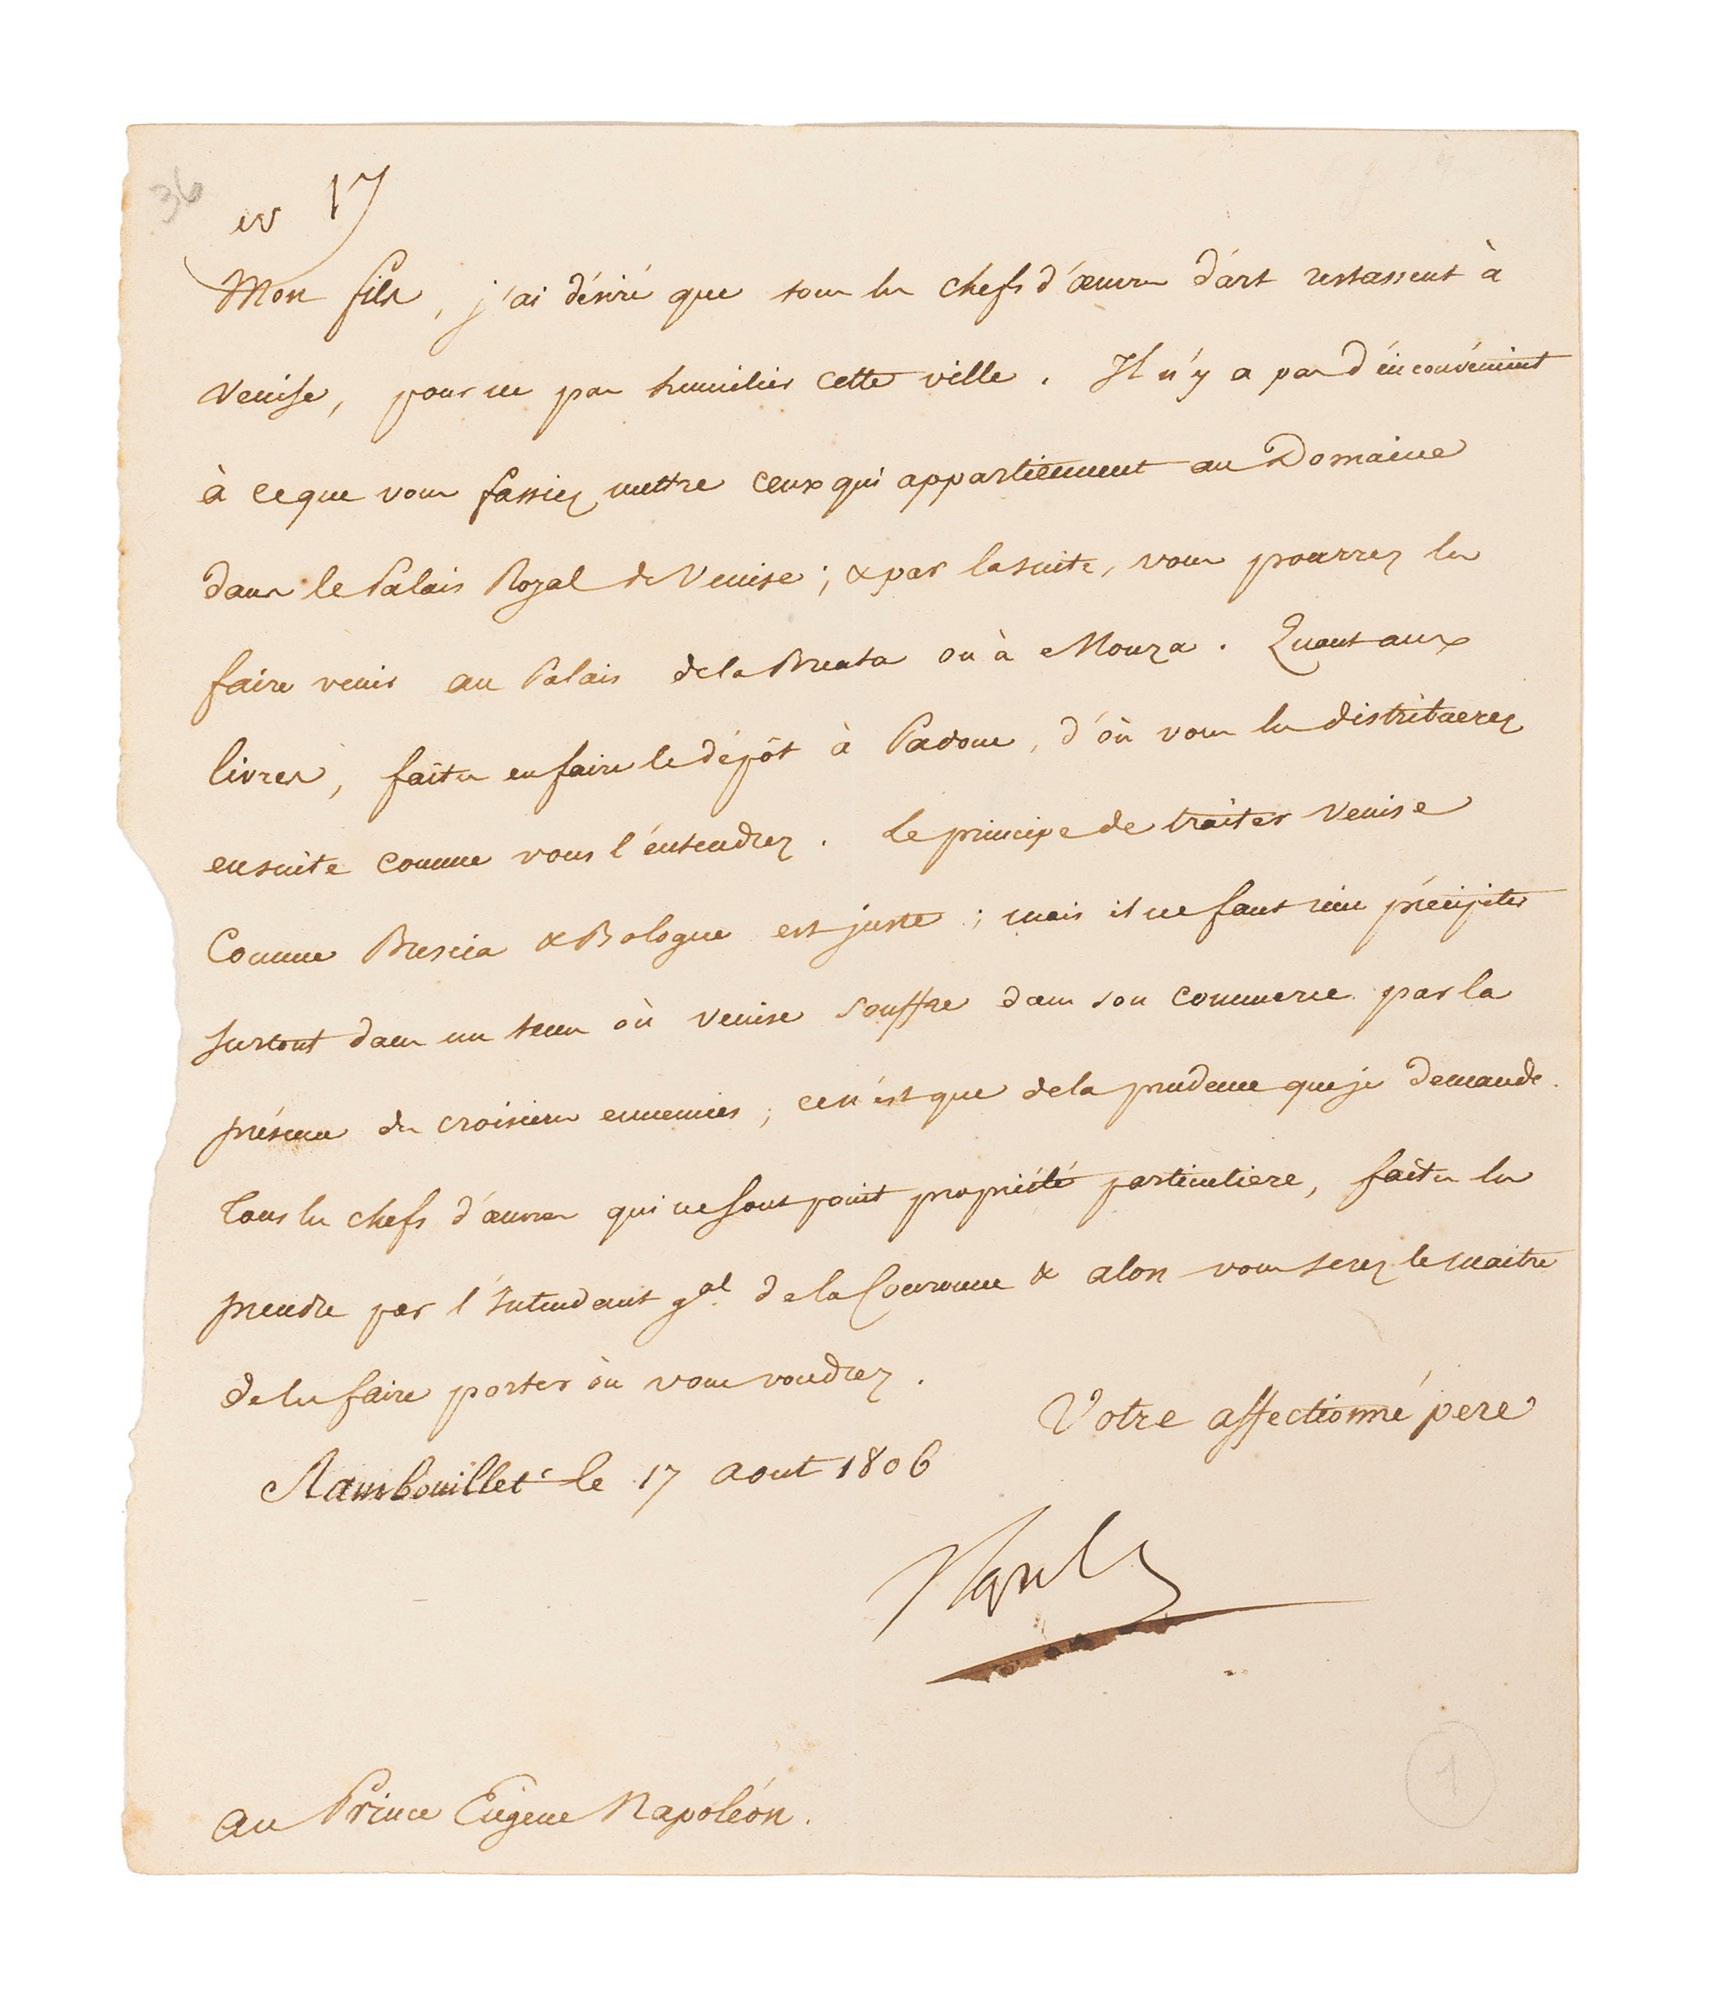 36
17
Mon fils, j'ai désiré que tous les chefs d'œuvres d'art restassent à
Venise, pour ne pas humilier cette ville. Il n'y a pas d'inconvénient
à ce que vous fassiez mettre ceux qui appartiennent au Domaine
dans le Palais Royal de Venise; & par la suite, vous pourrez les
faire venir au Palais de la Brenta ou à Monza. Quant aux
livres, faites en faire le dépôt à Padoue, d'où vous les distribuerez
ensuite comme vous l'entendrez. Le principe de traiter Venise
Comme Brescia & Bologne est juste; mais il ne faut rien précipiter
surtout dans un tems où Venise souffre dans son commerce par la
présence des croisieres ennemies; ce n'est que de la prudence que je demande.
Tous les chefs d'œuvres qui ne sont point propriété particuliere, faites les
prendre par l'Intendant gal. de la Couronne & alors vous serez le maitre
de les faire porter où vous voudrez.
Votre affectionné pere
Rambouillet le 17 aout 1806
Napole
au Prince Eugene Napoléon.
1